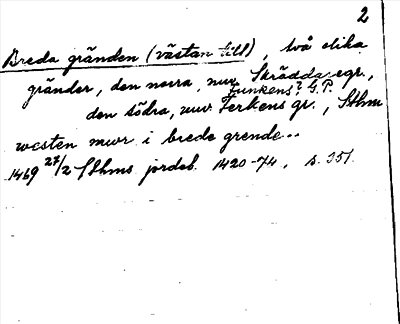 2
Breda gränden (västan till), två olika
gränder, den norra, nuv. Skräddaregr.,
Funkens? G.P.
den södra, nuv. Ferkens gr., Sthm
westen mwr i brede grende..
1469 27/2 Sthms jordeb. 1420-74, s. 351.